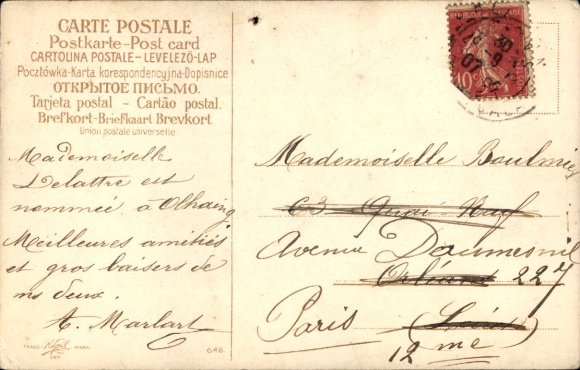 CARTE POSTALE
Postkarte-Post card
CARTOLINA POSTALE-LEVELEZŐ-LAP
Pocztówka-Karta korespondencyjna-Dopisnice
ОТКРЫТОЕ ПИСЬМО.
Tarjeta postal - Cartão postal.
Brefkort-Briefkaart Brevkort
Union postale universelle
Mademoiselle
Delattre est
nommée à Olhain
Meilleures amitiés
et gros baisers de
ns deux.
A. Marlart
646.
10
07
Mademoiselle Boulmier
63 Quai Neuf
Avenue Daumesnil
Orléans 227
Paris (Loiret)
12 me